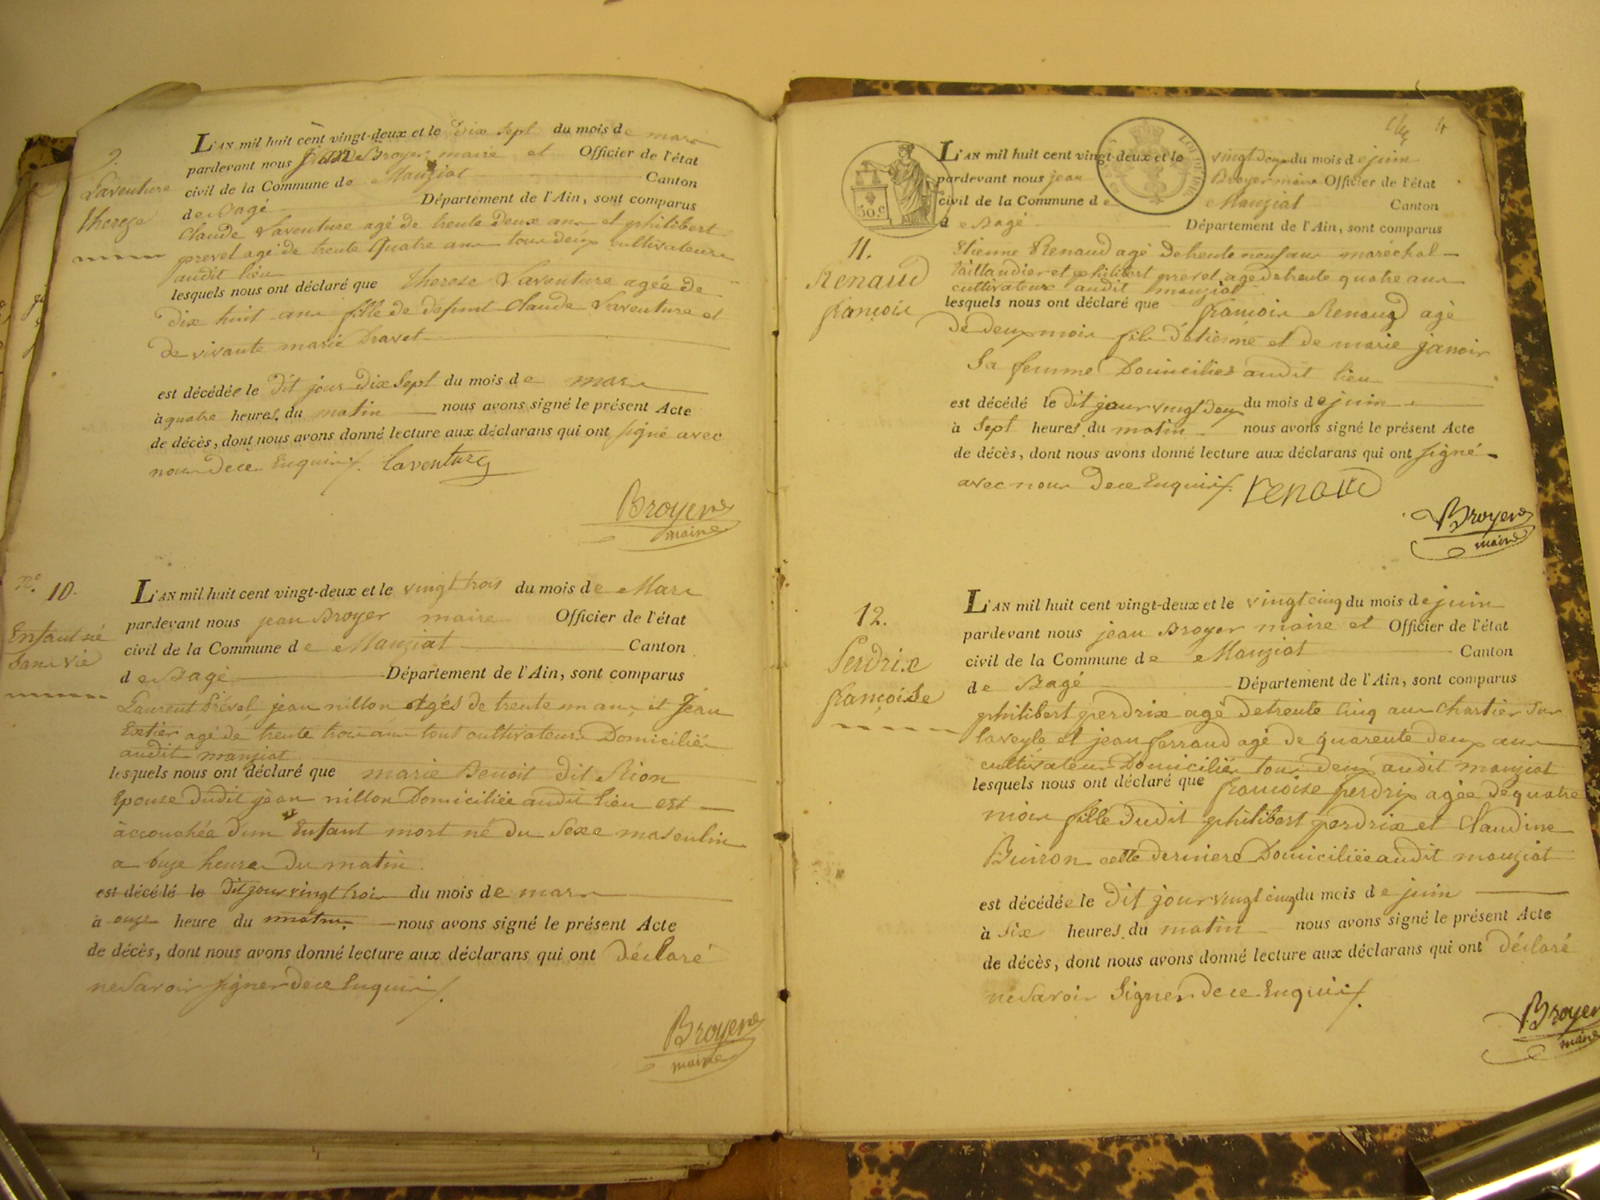 9.
Laventure
therese
L'AN mil huit cent vingt-deux et le dix sept du mois de mars
pardevant nous Jean Broyer maire et Officier de l'état
civil de la Commune de Manziat Canton
de Bagé Département de l'Ain, sont comparus
Claude Laventure agé de trente deux ans et philibert
prevel agé de trente quatre ans tous deux cultivateurs
audit lieu
lesquels nous ont déclaré que therese Laventure agée de
dix huit ans fille de defunt Claude Laventure et
de vivante marie Dravet
est décédée le dit jour dix sept du mois de mars
à quatre heures du matin nous avons signé le présent Acte
de décès, dont nous avons donné lecture aux déclarans qui ont signé avec
nous de ce Enquis. Laventure
Broyer
maire
No. 10.
Enfant né
sans vie
L'AN mil huit cent vingt-deux et le vingt trois du mois de Mars
pardevant nous jean Broyer maire Officier de l'état
civil de la Commune de Manziat Canton
de Bagé Département de l'Ain, sont comparus
Laurent Prével jean nillon agés de trente un ans et Jean
agé de trente trois ans tout cultivateurs Domiciliés
audit manziat
lesquels nous ont déclaré que marie Benoit dit Rion
Epouse dudit jean nillon Domiciliée audit lieu est
accouchée d'un Enfant mort né du Sexe masculin
a onze heures du matin
est décédé le dit jour vingt trois du mois de mars
à onze heure du matin nous avons signé le présent Acte
de décès, dont nous avons donné lecture aux déclarans qui ont déclaré
ne savoir signer de ce Enquis.
Broyer
maire
50 c
11.
Renaud
françois
L'AN mil huit cent vingt-deux et le vingt deux du mois de juin
pardevant nous jean Broyer maire Officier de l'état
civil de la Commune de Manziat Canton
de Bagé Département de l'Ain, sont comparus
Etienne Renaud agé de trente neuf ans maréchal
Taillandier et philibert prevel agé de trente quatre ans
cultivateurs audit manziat
lesquels nous ont déclaré que françois Renaud agé
de deux mois fils d'étienne et de marie janoir
Sa femme Domiciliés audit lieu
est décédé le dit jour vingt deux du mois de juin
à Sept heures du matin nous avons signé le présent Acte
de décès, dont nous avons donné lecture aux déclarans qui ont signé
avec nous de ce Enquis. renaud
Broyer
maire
12.
Perdrix
françoise
L'AN mil huit cent vingt-deux et le vingt cinq du mois de juin
pardevant nous jean Broyer maire et Officier de l'état
civil de la Commune de Manziat Canton
de Bagé Département de l'Ain, sont comparus
philibert perdrix agé de trente cinq ans Chartier Sur
laveyle et jean ferraud agé de quarente deux ans
cultivateur Domiciliés tous deux audit manziat
lesquels nous ont déclaré que françoise perdrix agée de quatre
mois fille dudit philibert perdrix et Claudine
Buiron cette derniere Domiciliée audit manziat
est décédée le dit jour vingt cinq du mois de juin
à Six heures du matin nous avons signé le présent Acte
de décès, dont nous avons donné lecture aux déclarans qui ont déclaré
ne savoir Signer de ce Enquis.
Broyer
maire